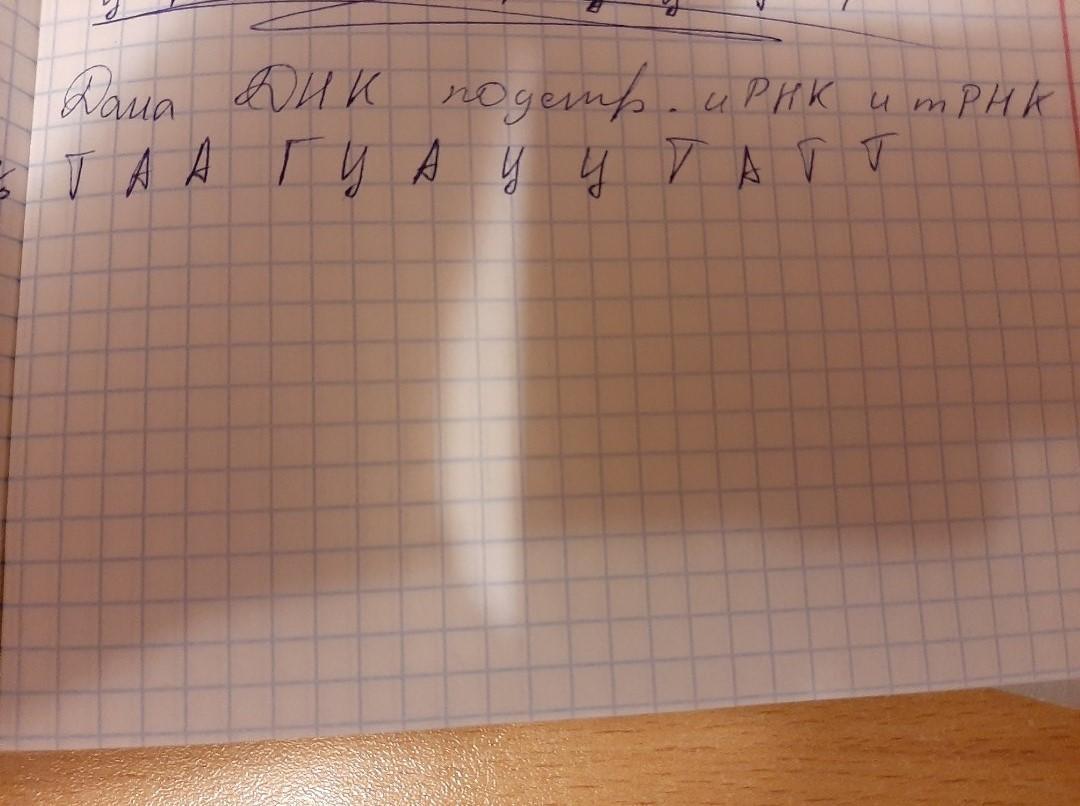 Дана ДНК подстр. и РНК и т РНК
Т А А Г Ц А Ц Ц Т А Т Т